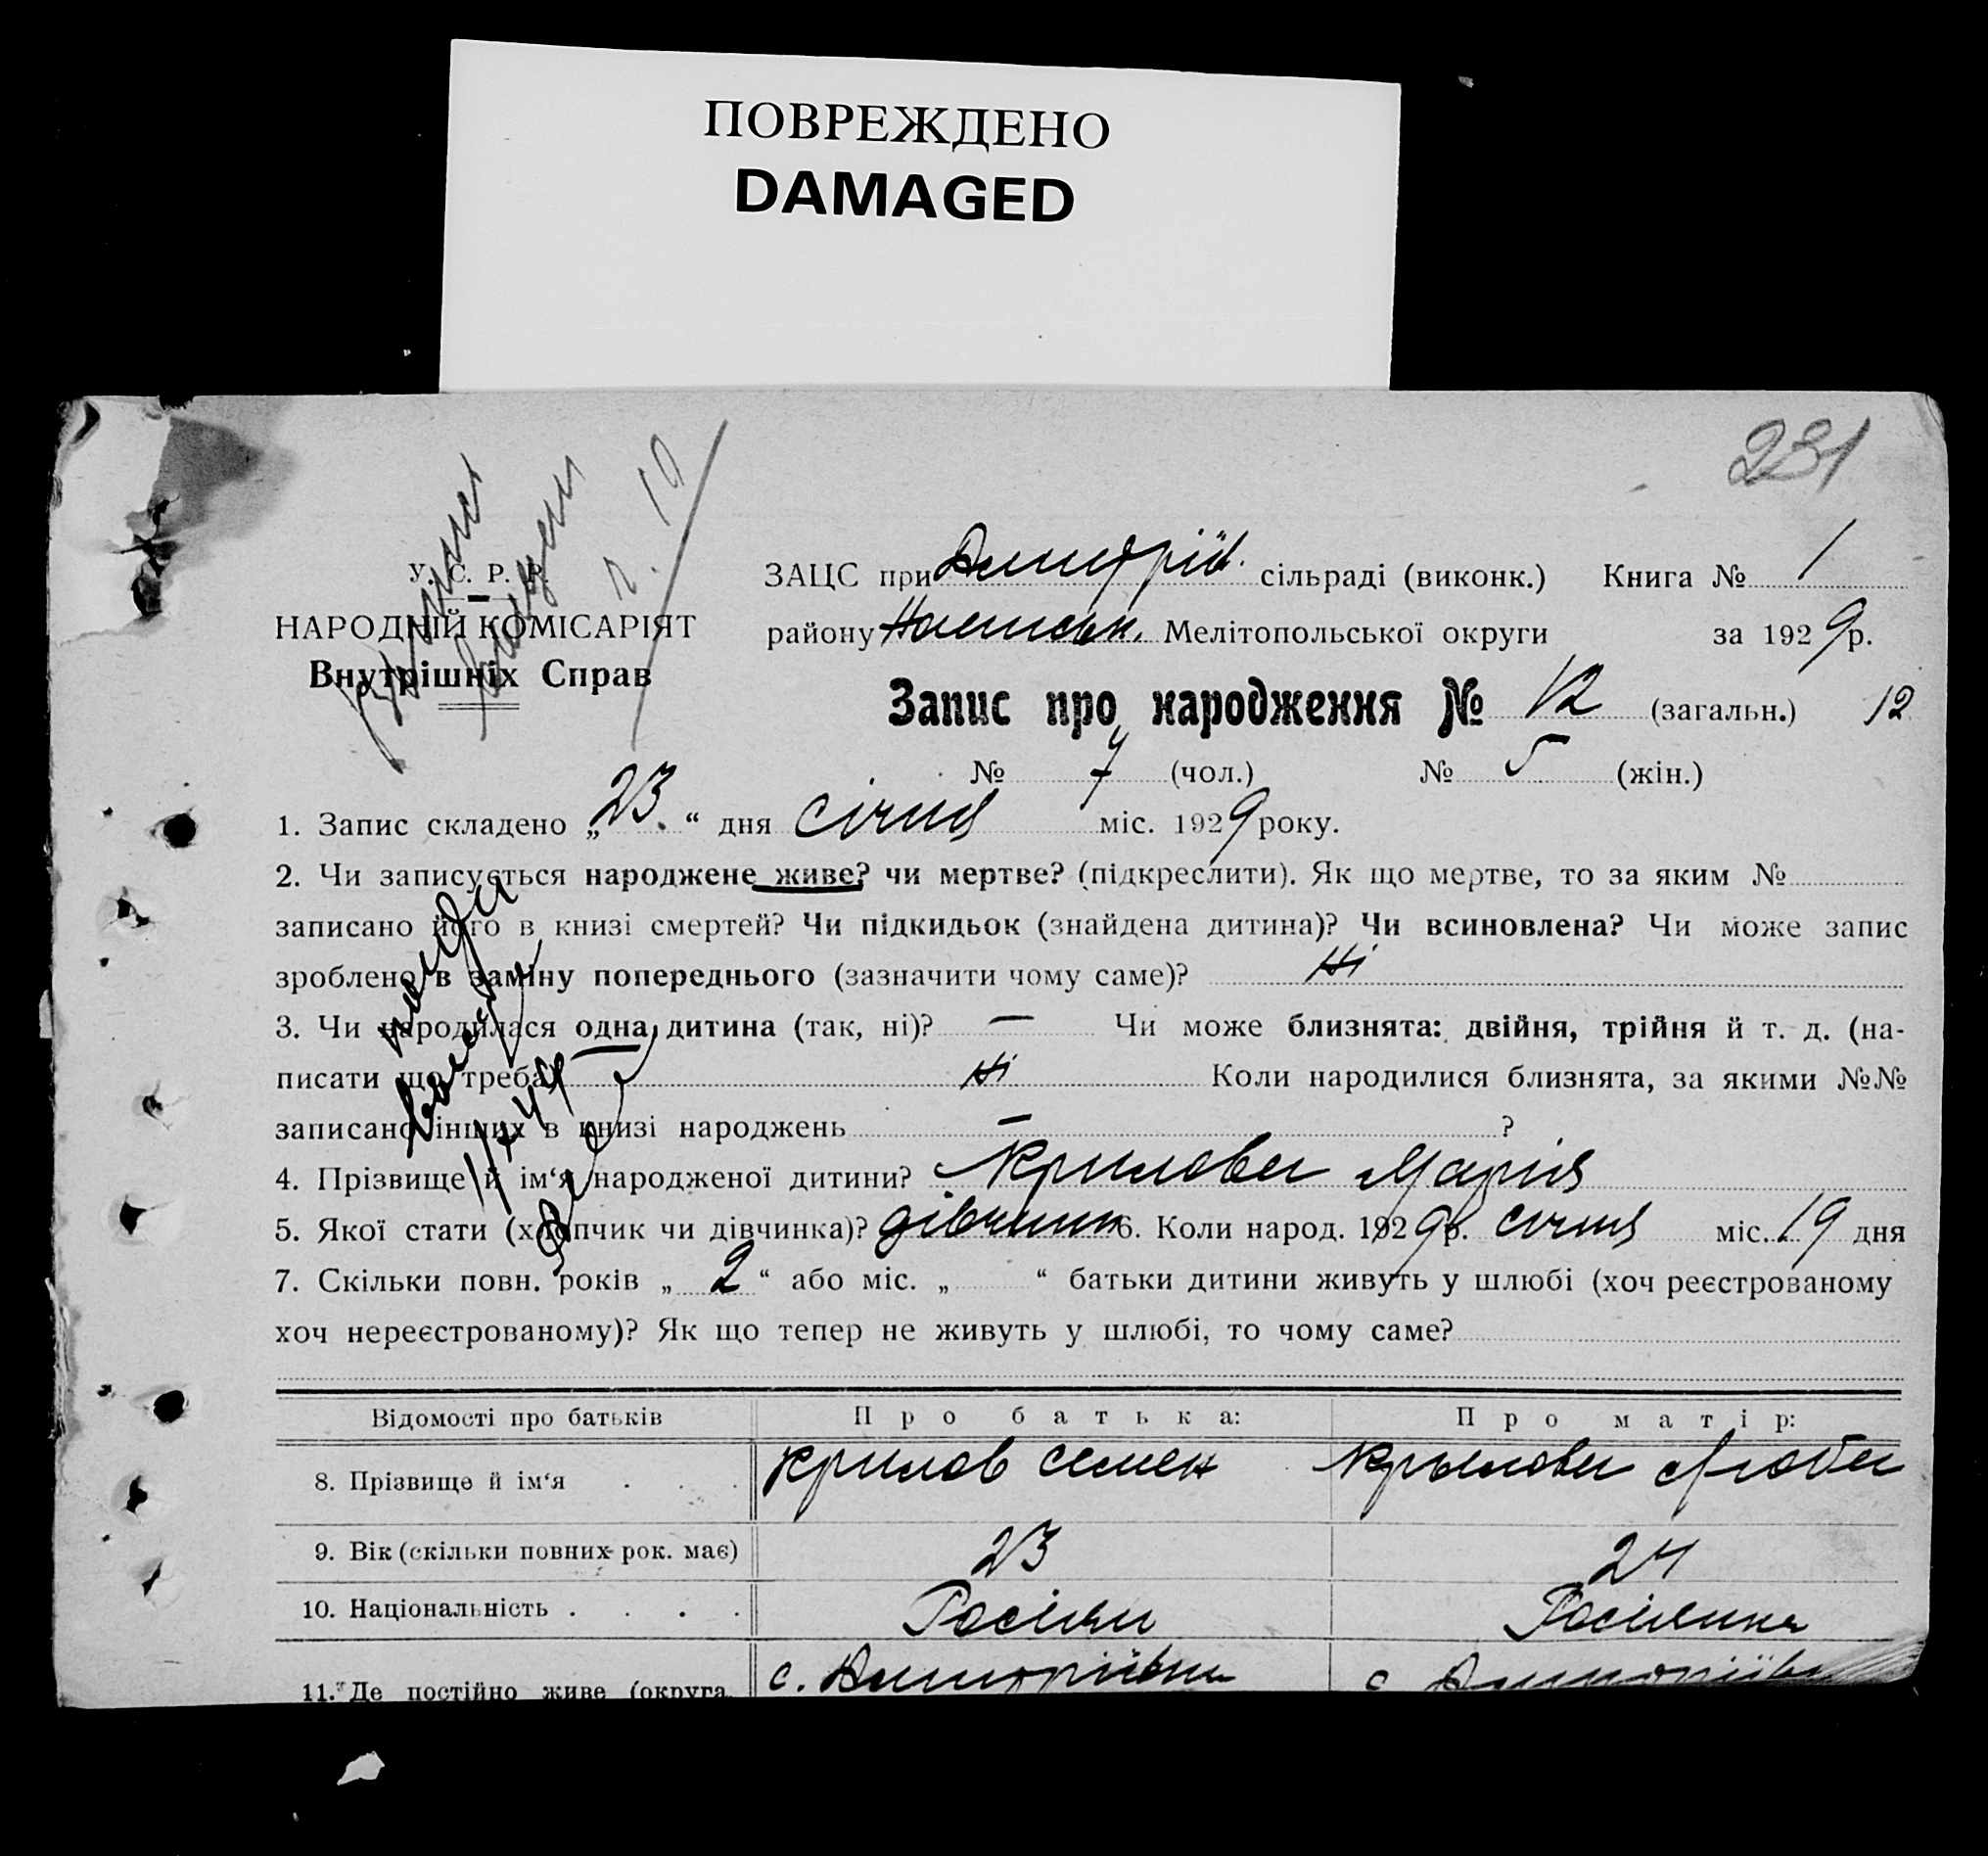 ПОВРЕЖДЕНО
DAMAGED
231
У. С. Р. Р.
НАРОДНІЙ КОМІСАРІЯТ
Внутрішніх Справ
ЗАЦС при Дмитрів. сільраді (виконк.) Книга № 1
району Мелітопольської округи за 1929 р.
Запис про народження № 12 (загальн.) 12
№ 7 (чол.) № 5 (жін.)
1. Запис складено „23.“ дня січня міс. 1929 року.
2. Чи записується народжене живе? чи мертве? (підкреслити). Як що мертве, то за яким №
записано його в книзі смертей? Чи підкидьок (знайдена дитина)? Чи всиновлена? Чи може запис
зроблено в заміну попереднього (зазначити чому саме)? Ні
3. Чи народилася одна дитина (так, ні)? — Чи може близнята: двійня, трійня й т. д. (на-
писати що треба) Ні Коли народилися близнята, за якими №№
записано інших в книзі народжень — ?
4. Прізвище й ім‘я народженої дитини? Крилова Марія
5. Якої стати (хлопчик чи дівчинка)? дівчинк 6. Коли народ. 1929 р. січня міс. 19 дня
7. Скільки повн. років „ 2 “ або міс. „ “ батьки дитини живуть у шлюбі (хоч реєстрованому
хоч нереєстрованому)? Як що тепер не живуть у шлюбі, то чому саме?
Відомості про батьків Про батька: Про матір:
8. Прізвище й ім‘я . . . Крилов Семен Крылова Люба
9. Вік (скільки повних рок. має) 23 24
10. Національність . . . . Росіян Росіянка
11. Де постійно живе (округа, с. Дмитрівка с. Дмитрівк